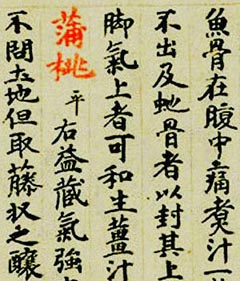 魚骨在腹中痛煑汁一
不出及虵骨者以封其上
脚氣上者可和生薑汁
蒲桃 平 右益藏氣強
不問土地但取藤收之釀